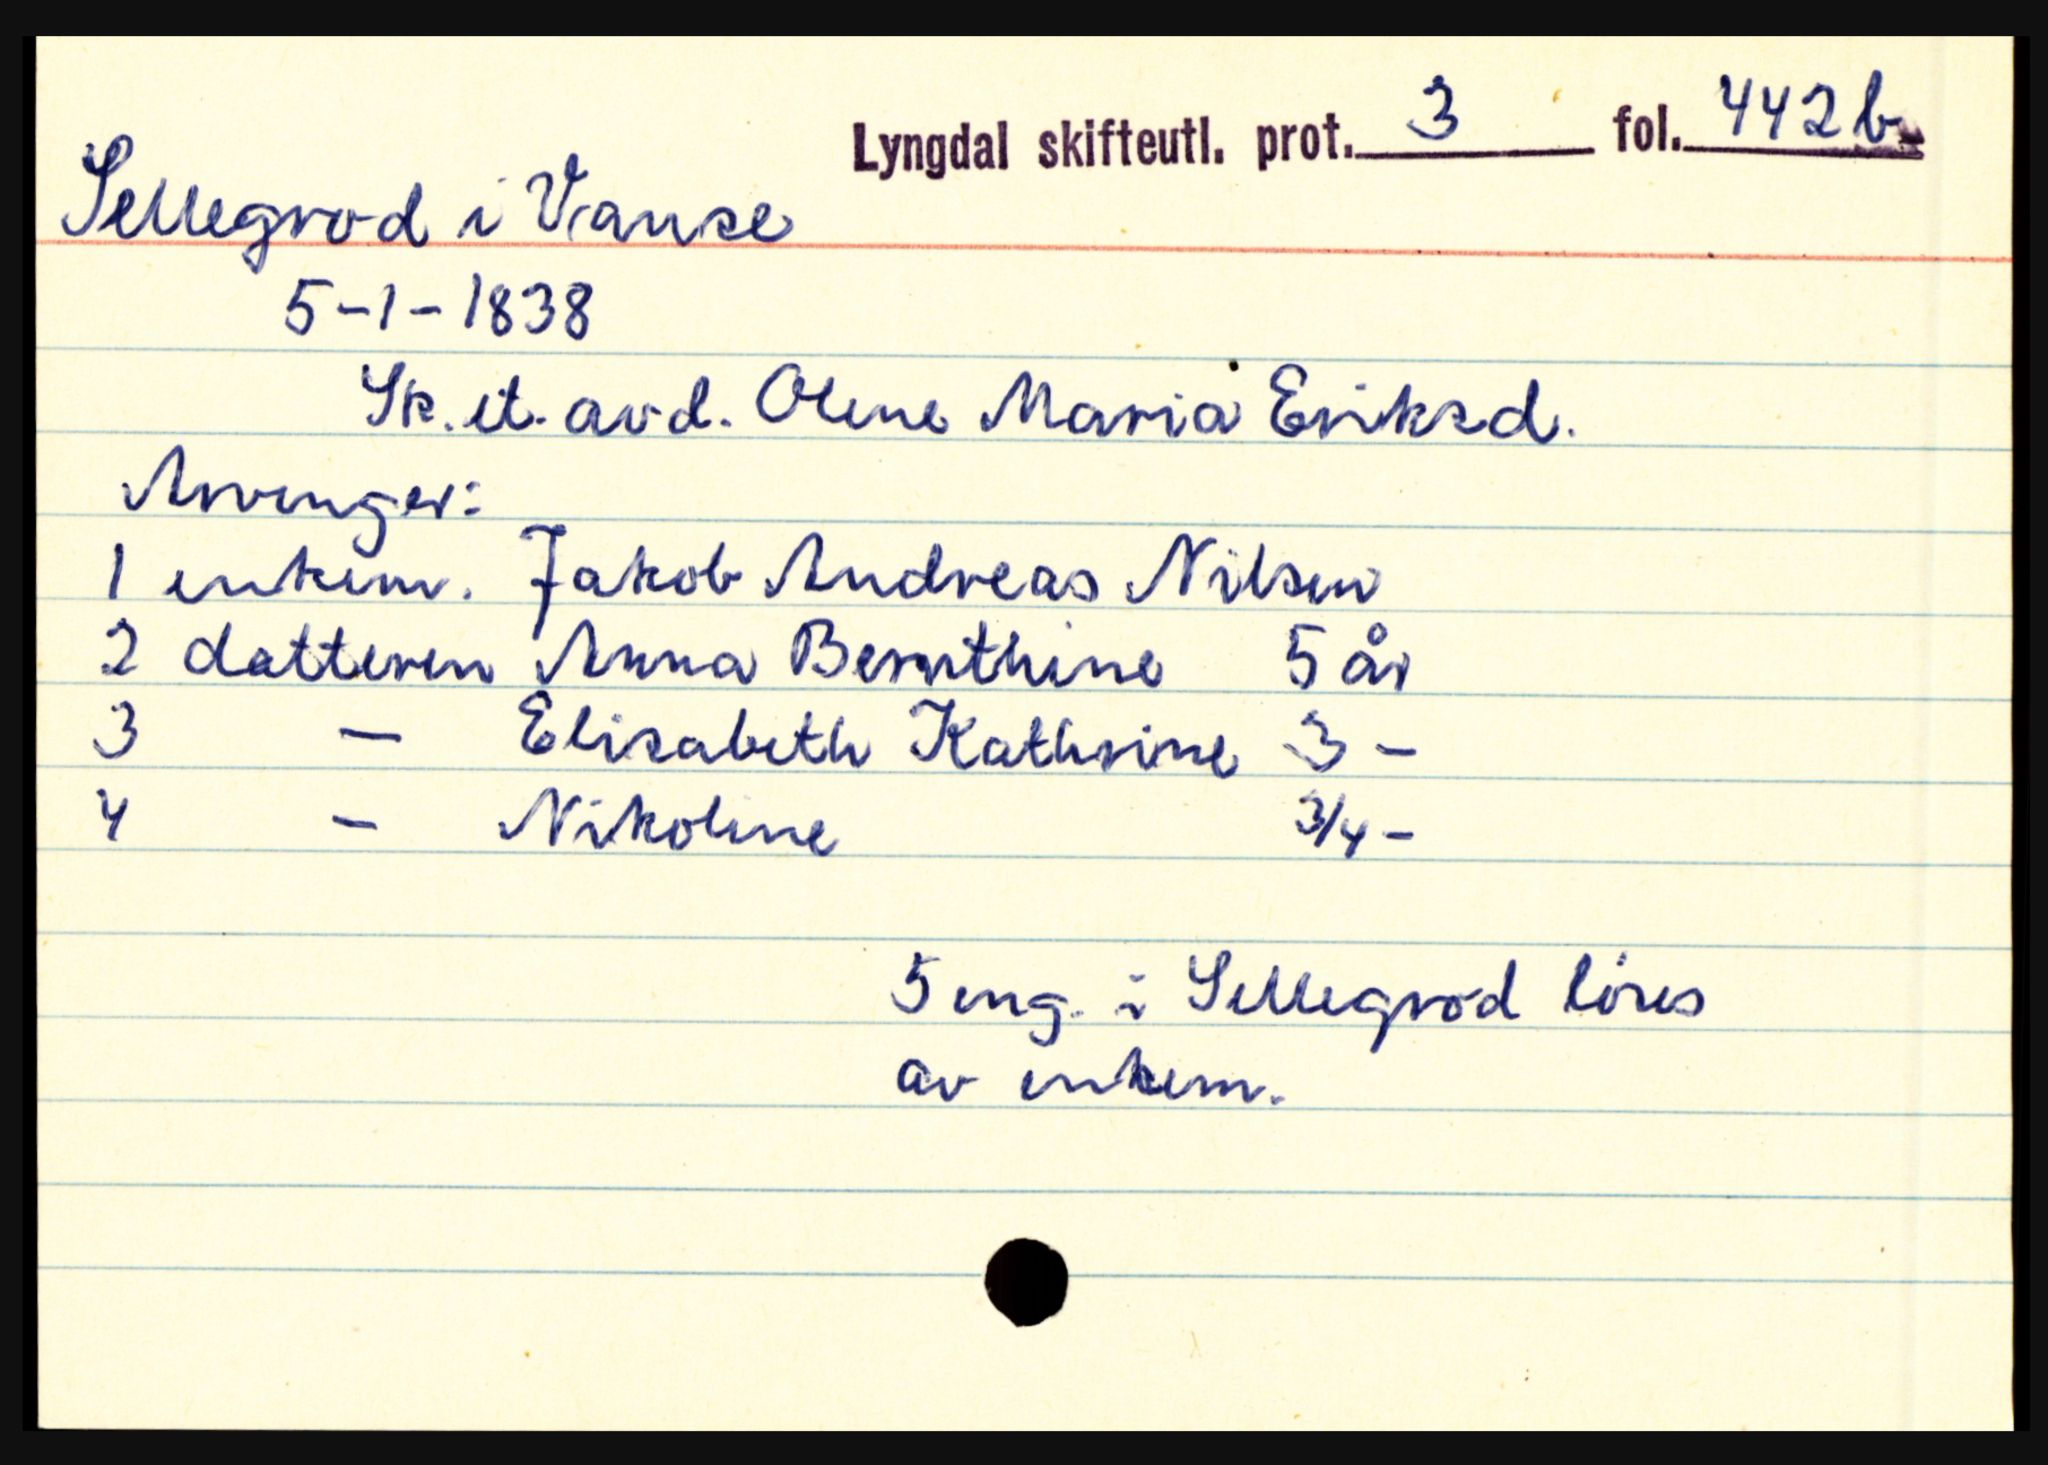 Lyngdal skifteutl. prot. 3 fol. 442 b
Sellegrod i Vanse
5-1-1838
Sk. et. avd. Olene Maria Eriksd.
Arvinger:
1 enkem. Jakob Andreas Nilsen
2 datteren Anna Bernthine 5 år
3 — Elisabeth Kathrine 3 -
4 - Nikoline 3/4 -
5 eng. i Sellegrod löses
av enkem.